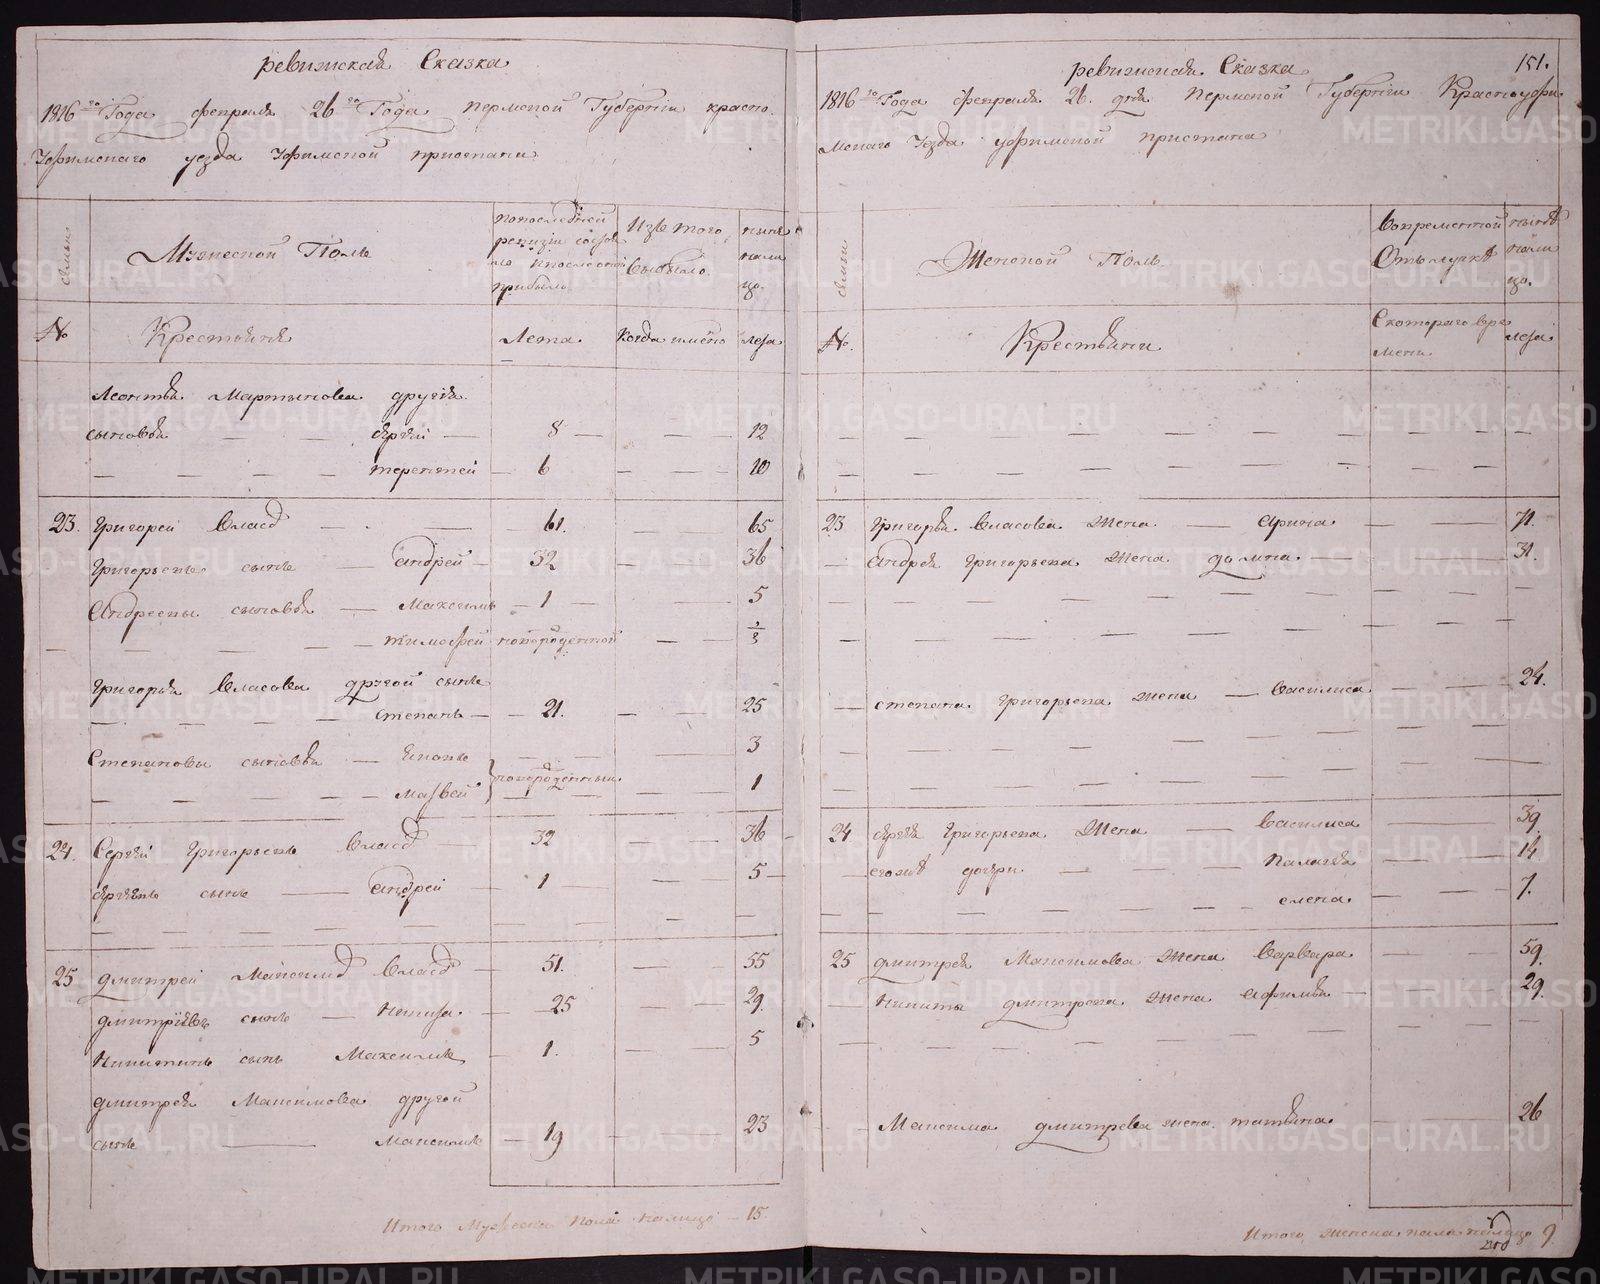 ревижская Сказка
1816го Года февраля 26го Года пермской Губернии красно
Уфимскаго уезда Уфимской пристани
семьи
Мужеской Поль
попоследней ревизии состояло ипослетой прибыло
Изъ того выбыло
ныне нали цо.
№
Крестьяня
Лета
Когда имено
лета
Леонтья Мартынова другия
сыновья — — — сергей — 8 — — — 12
— — — — терентей — 6 — — — 10
23. Григорей Власо — — 61. — — 65
Григорьевъ сынъ — андрей — 32 — — 36
Андреевы сыновья — Максимъ — 1 — — 5
— — — — тимофей новорожденной — —
Григорья Власова другой сынъ
— — — — степанъ — 21. — — 25
Степановы сыновья — 3
— — — — матвей новорожденныи — 1
24. Сергей Григорьевъ Власо — 32 — — 36
сергеевъ сынъ — андрей — 1 — — 5
25 дмитрей Максимо Власо — 51. — — 55
дмитриевъ сынъ — Никита. — 25 — — 29.
Никитинъ сынъ Максимъ — 1. — — 5
дмитрея Максимова другой
сынъ — Максимъ — 19 — — 23
Итого Мужеска пола налицо — 15.
151.
ревижская Сказка
1816го Года февраля 26. дня Пермской Губернии Красноуфи
мскаго Уезда уфимской пристани
семьи
Женской Поль
Вовременной Отлучке
ныне нали цо.
№.
Крестьяни
Скотораго вре мени
лета
23 Григорья Власова жена — Арина — — 71.
— андрея Григорьева жена домна — — 31.
— степана Григорьева жена — Василиса — — 24.
24 сергея Григорьева жена — Василиса — — 39.
— егоже дочери — — Палагея — — 14.
— — — — елена. — — 7.
25 дмитрея Максимова жена Варвара — — 59.
Никиты дмитрева жена Афимья — — 29.
— Максима дмитрева жена. татьяна. — 26
Итого, женска пала налицо 9.